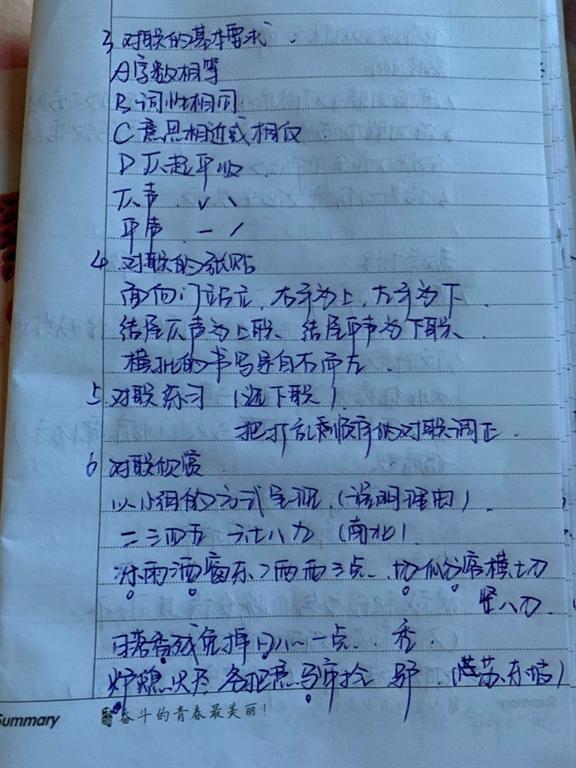 3、对联的基本要求
A 字数相等
B 词性相同
C 意思相近或相反
D 仄起平收
仄声 ˇ ˋ
平声 一 ˊ
4、对联的张贴
面向门站立,右手为上,左手为下.
结尾仄声为上联、结尾平声为下联、
横批的书写是自右而左
5、对联练习(选下联)
把打乱顺序的对联调正.
6、对联欣赏
以小组的方式呈现(说明理由)
二三四五 六七八九(南北)
冻雨洒窗东二两西三点、切瓜分席横七刀
竖八刀
一点
炉熄火
Summary
奋斗的青春最美丽!